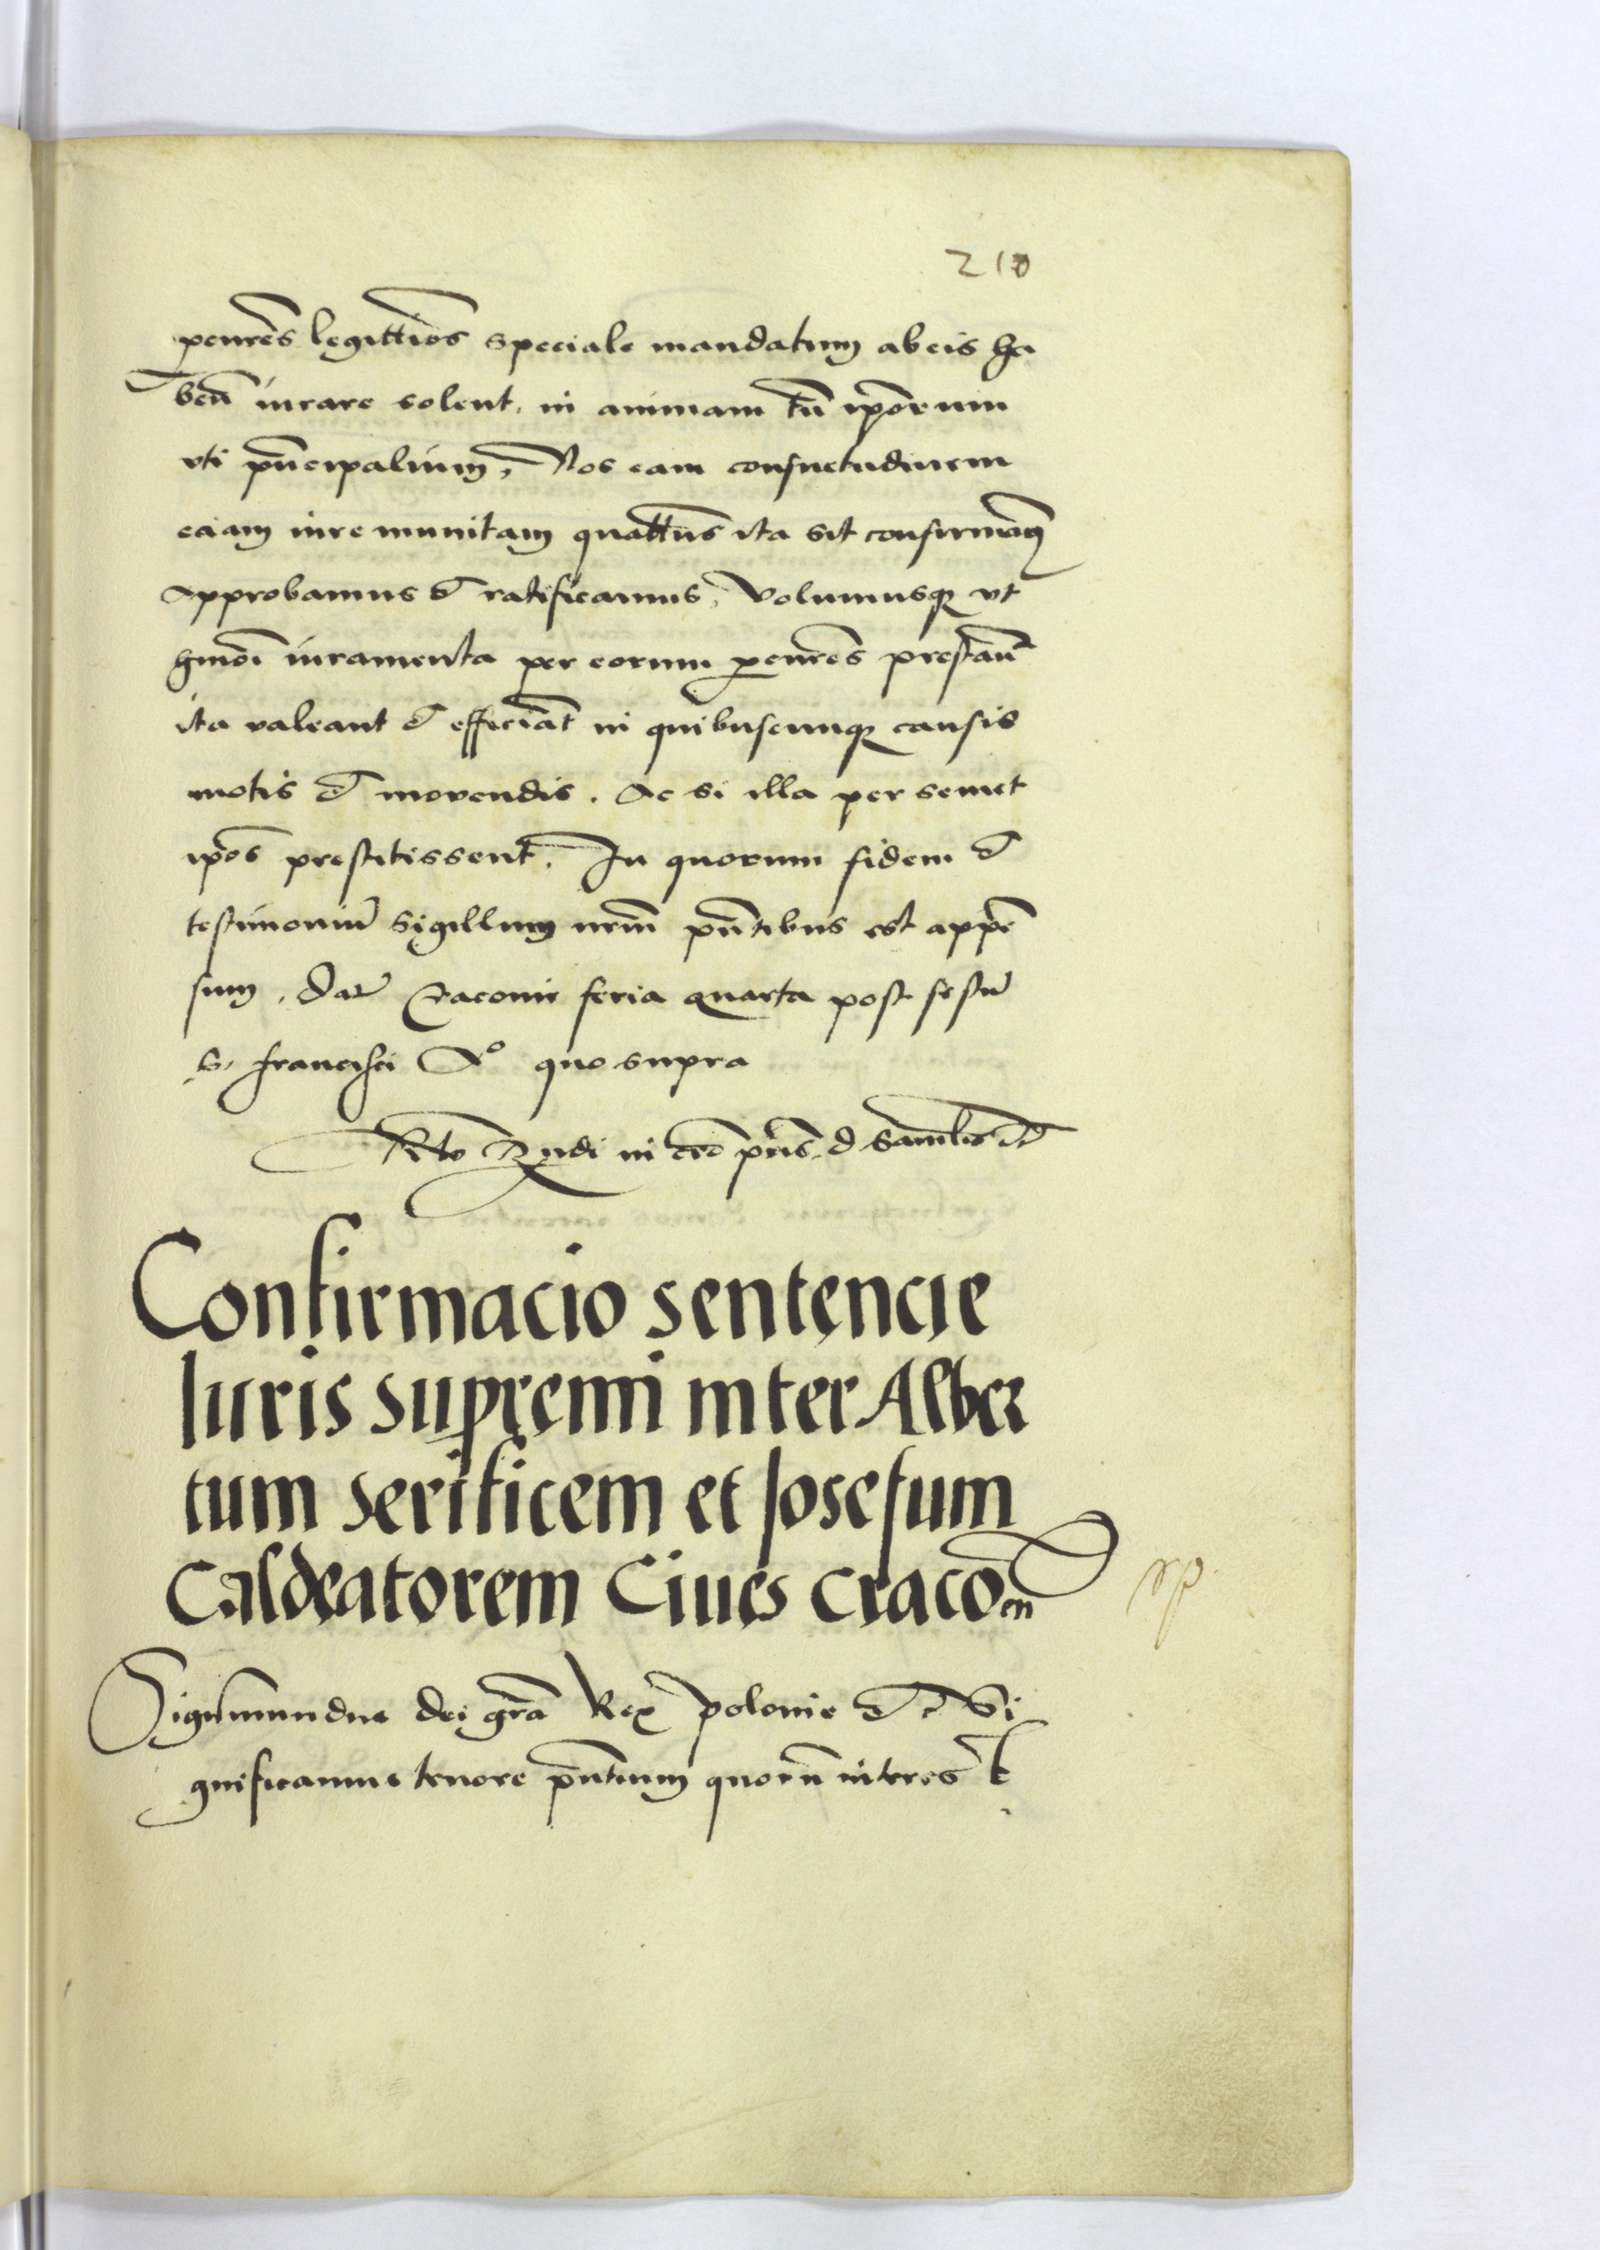 210
pcur̄es legitti͞os speciale mandatum ab eis ha
beñ iurare solent, in animam tn̄ ip̄orum
vti pn̄cipalium, Nos eam consuetudinem
eciam iure munitam quatt̄us ita sit confirmam̄⁹
Approbamus et ratificamus, Volumusq̢ vt
hmōi iuramenta per eorum pcur̄es prestan̄
ita valeant et efficiāt in quibuscumq̢ causis
motis et movendis. Ac si illa per semet
ip̄os prestitissent. In quorum fidem et
testimoniū sigillum nr̄m pn̄tibus est appē
sum. Dat̄ Cracouie feria quarta post festū
S. Francisci A° quo supra
in pn̄s. d
Confirmacio sentencie
Iuris supremi inter Alber
tum serificem et Josefum
Caldeatorem Ciues Cracō
en
Sigismundus dei gr̄a Rex polonie et c̄ Si
gnificamus tenore pn̄tium quorū interest